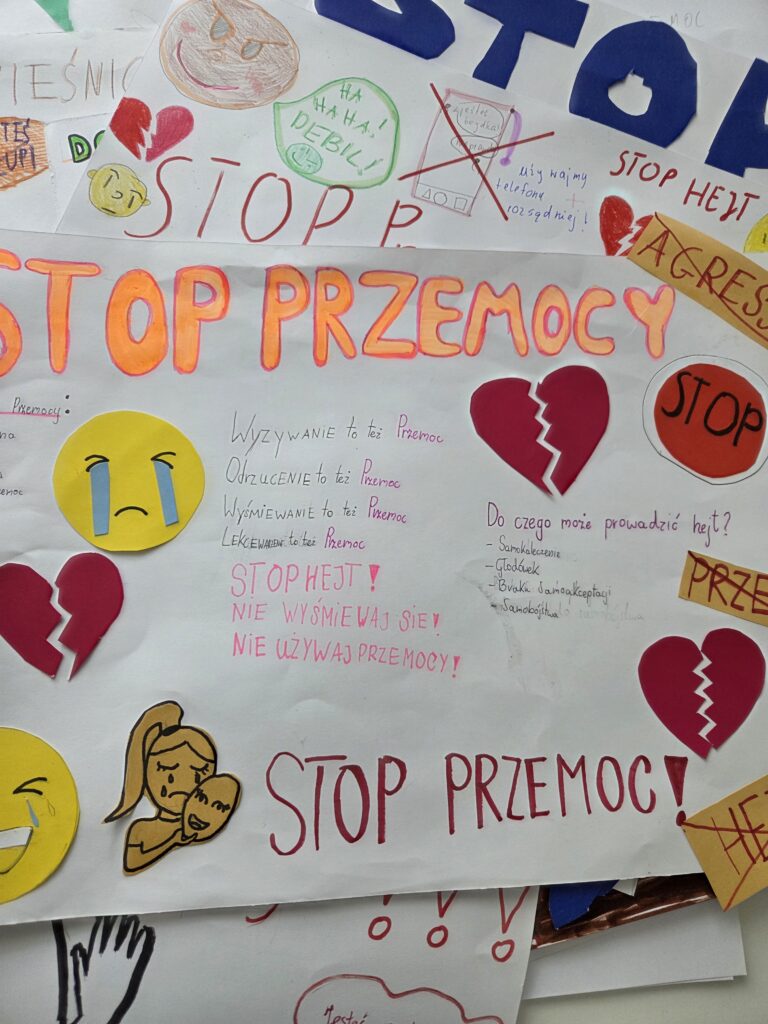 STOP
HA
HA HA!
DEBIL!
jesteś
brzydka!
Używajmy
telefonu
rozsądniej!
STOP HEJT
STOP P
AGRES
STOP PRZEMOCY
Przemocy:
STOP
Wyzywanie to też Przemoc
Odrzucenie to też Przemoc
Wyśmiewanie to też Przemoc
Lekceważenie to też Przemoc
STOP HEJT!
NIE WYŚMIEWAJ SIĘ!
NIE UŻYWAJ PRZEMOCY!
Do czego może prowadzić hejt?
- Samokaleczenie
- Głodówek
- Braku samoakceptacji
- Samobójstwa
PRZE
STOP PRZEMOC!
HEJ
!!!
Jesteś